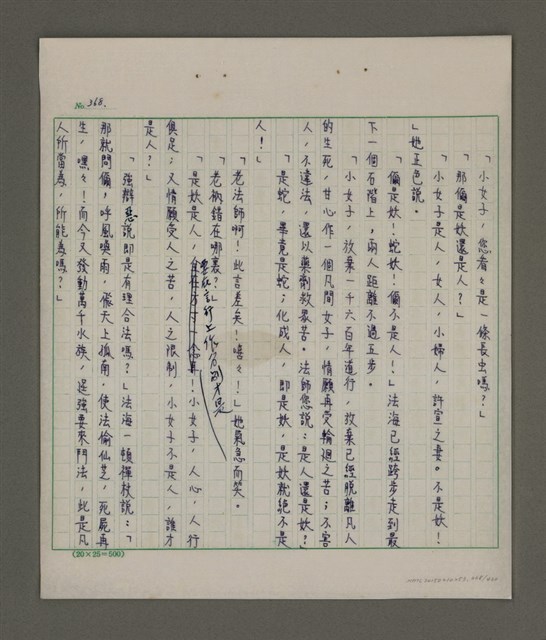 No. 368.
「小女子，您看々是一條長虫嗎？」
「那個是妖還是人？」
「小女子是人，女人，小婦人，許宣之妻。不是妖！
」她正色說。
「個是妖！蛇妖！個不是人！」法海已經跨步走到最
下一個石階上；兩人距離不過五步。
「小女子，放棄一千六百年道行，放棄已經脫離凡人
的生死，甘心作一個凡間女子，情願再受輪迴之苦；不害
人，不違法，還以藥劑救眾苦。法師您說：是人還是妖？」
「是蛇，畢竟是蛇；化成人，即是妖，是妖就絕不是
人！」
「老法師啊！此言差矣！嘻々！」她氣急而笑。
「老衲錯在哪裏？」
「是妖是人，要從言行上作分別才是 小女子，人心，人行
俱足；又情願受人之苦，人之限制，小女子不是人，誰才
是人？」
「強辯惡說即是有理合法嗎？」法海一頓禪杖說：「
那就問個，呼風喚雨，僭天上孤南，使法偷仙芝，死屍再
生，嘿々！而今又發動萬千水族，逞強要來鬥法，此是凡
人所當為，所能為嗎？」
(20×25=500)